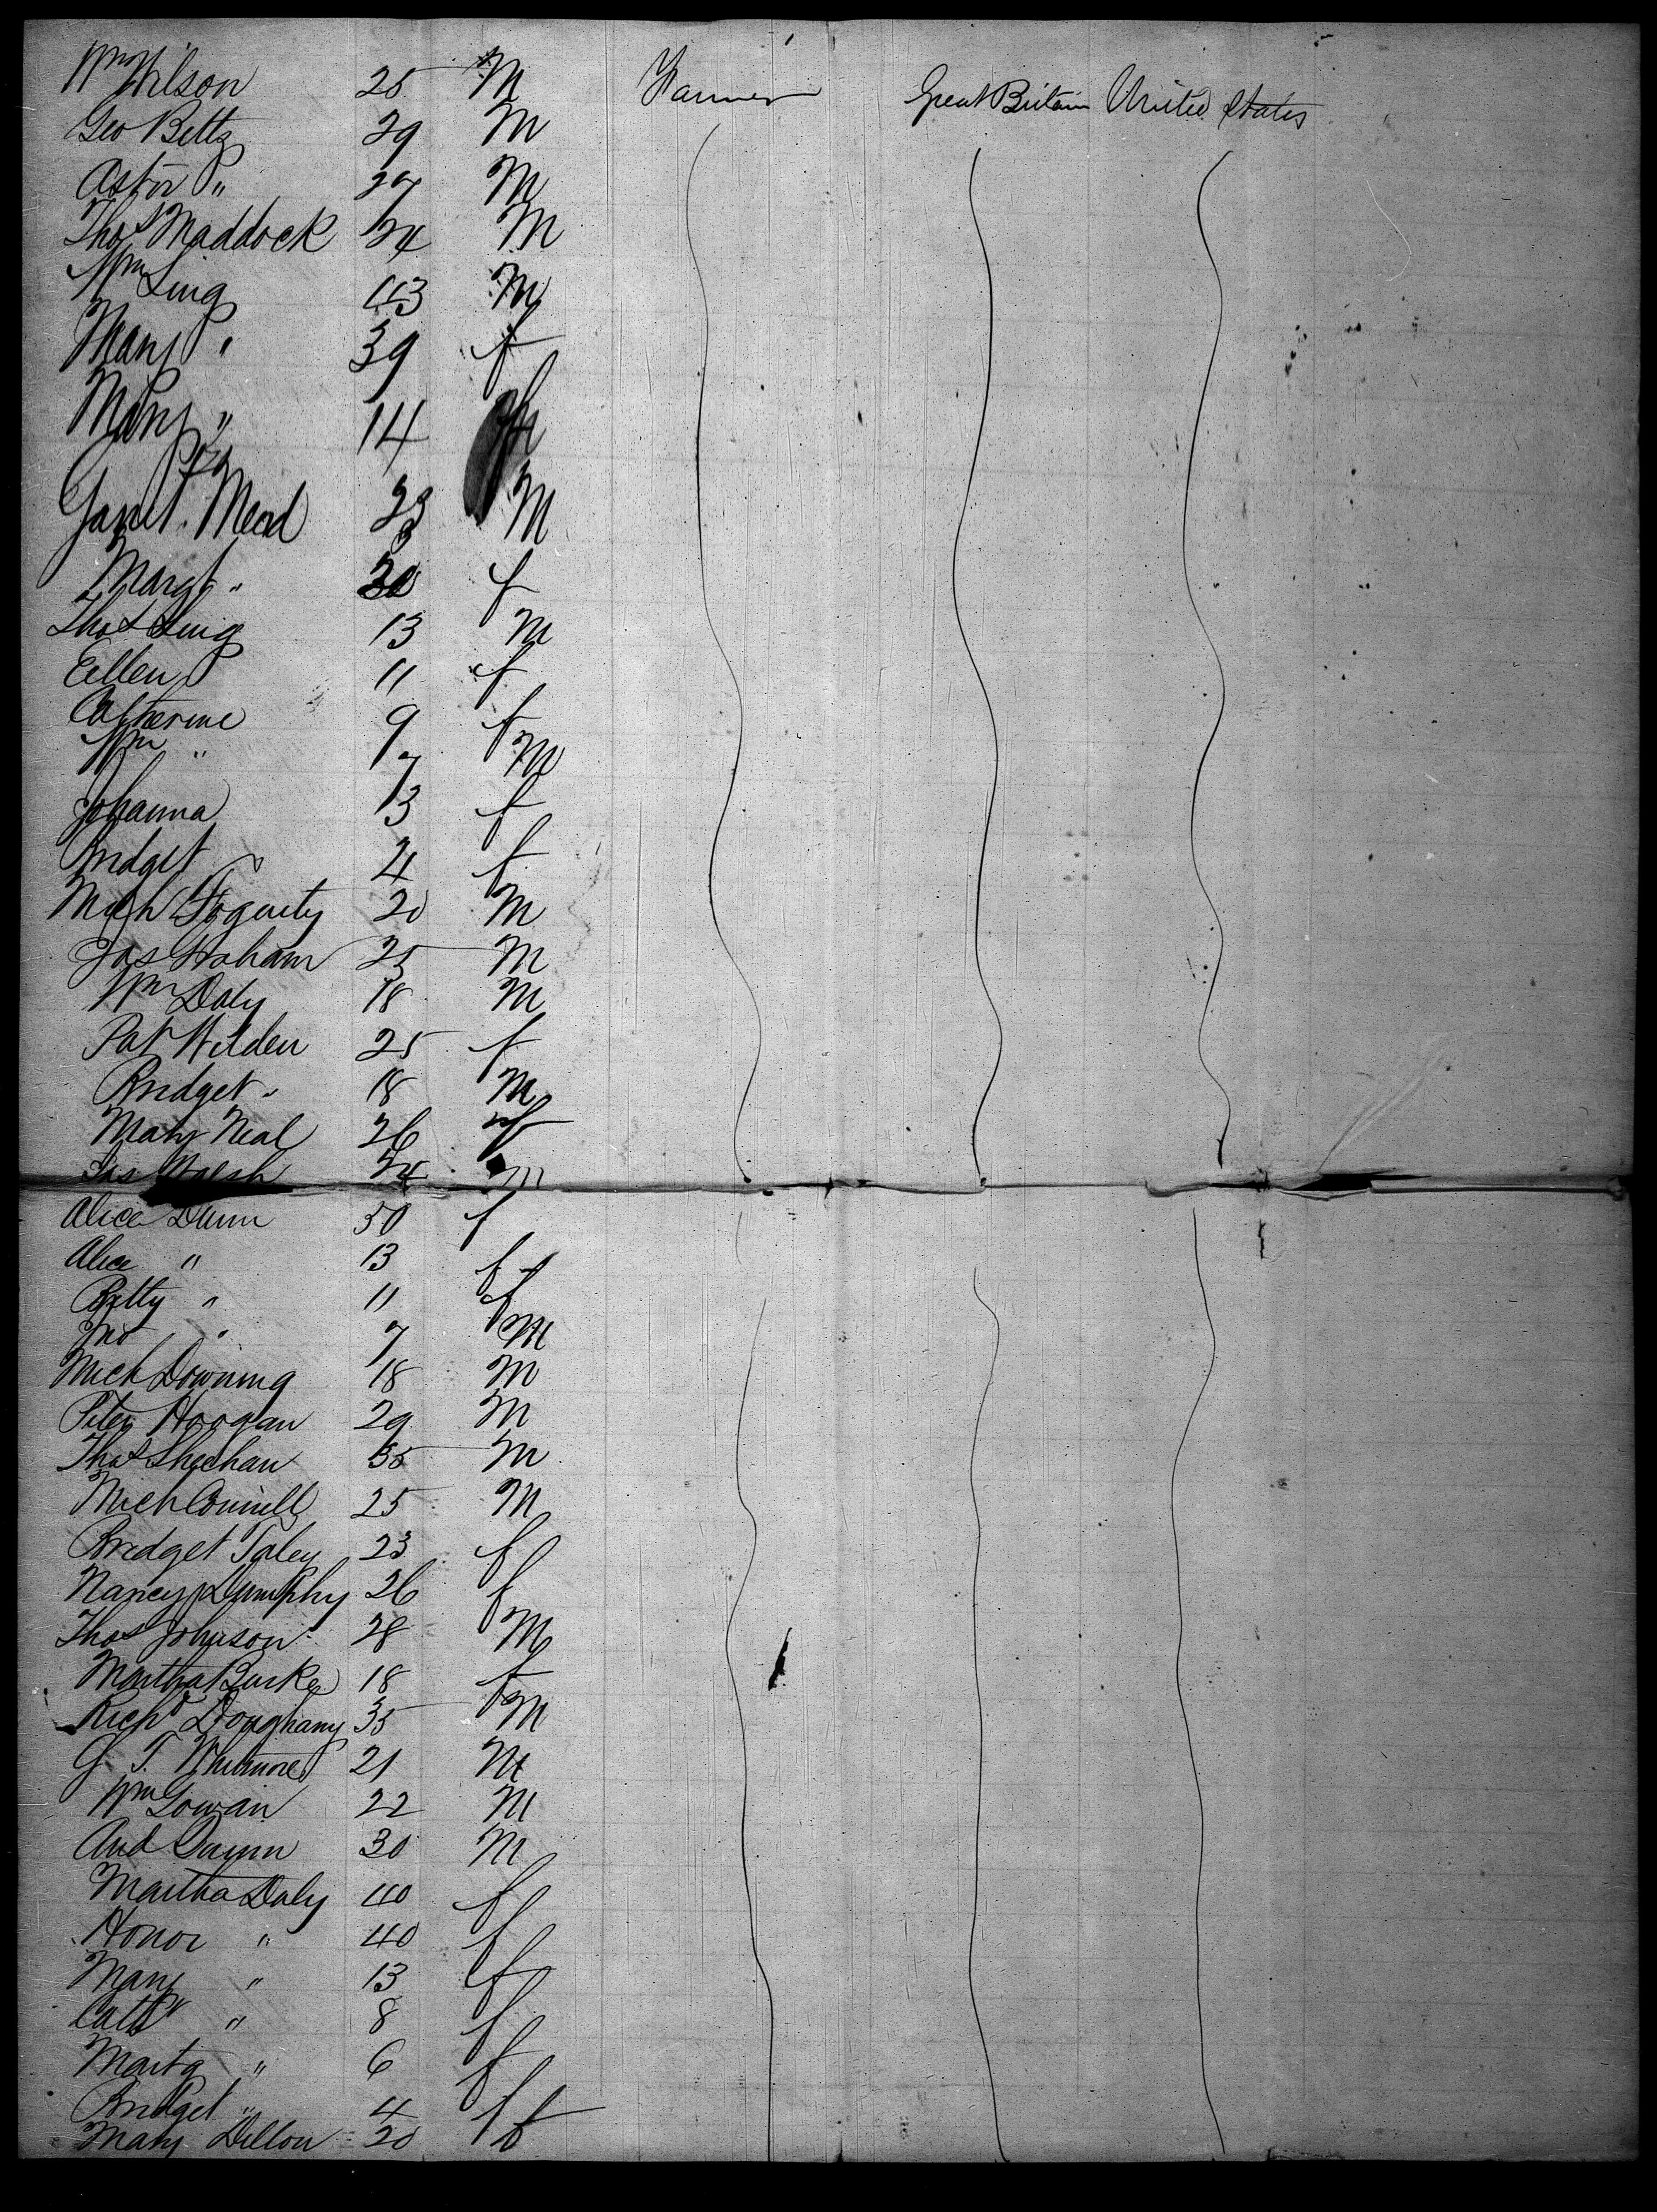 Wm Wilson 25 M Farmer Great Britain United States
Geo Betts 29 M
Astor " 27 M
Thos Maddock 24 M
Wm Ling 43 M
Mary " 39 f
Mary " 14
Mead 23 M
Margt " 30 f
Thos Ling 13 M
Ellen 11 f
Catherine 9 f
Wm " 7 M
Johanna 13 f
Bridget 4 f
Mich Fogerty 20 M
Jas Graham 25 M
Wm Daly 18 M
Pat Wilden 25 f
Bridget " 18 M
Mary Neal 26 f
Jas Walsh 24 M
Alice Dunn 50 f
Alice " 13 f
Betty " 11 f
Jno " 7 M
Mich Downing 18 M
Peter Hoogan 29 M
Thos Sheehan 35 M
Mich Connell 25 M
Bridget Foley 23 f
Nancy Dumphy 26 f
Thos Johnson 28 M
Martha Burke 18 f
Richd Doughany 35 M
G. T. Whitmore 21 M
Wm Gowan 22 M
And 30 M
Martha Daly 40 f
Honor " 40 f
Mary " 13 f
Cath " 8 f
Marta " 6 f
Bridget " 4 f
Mary Dillon 20 f